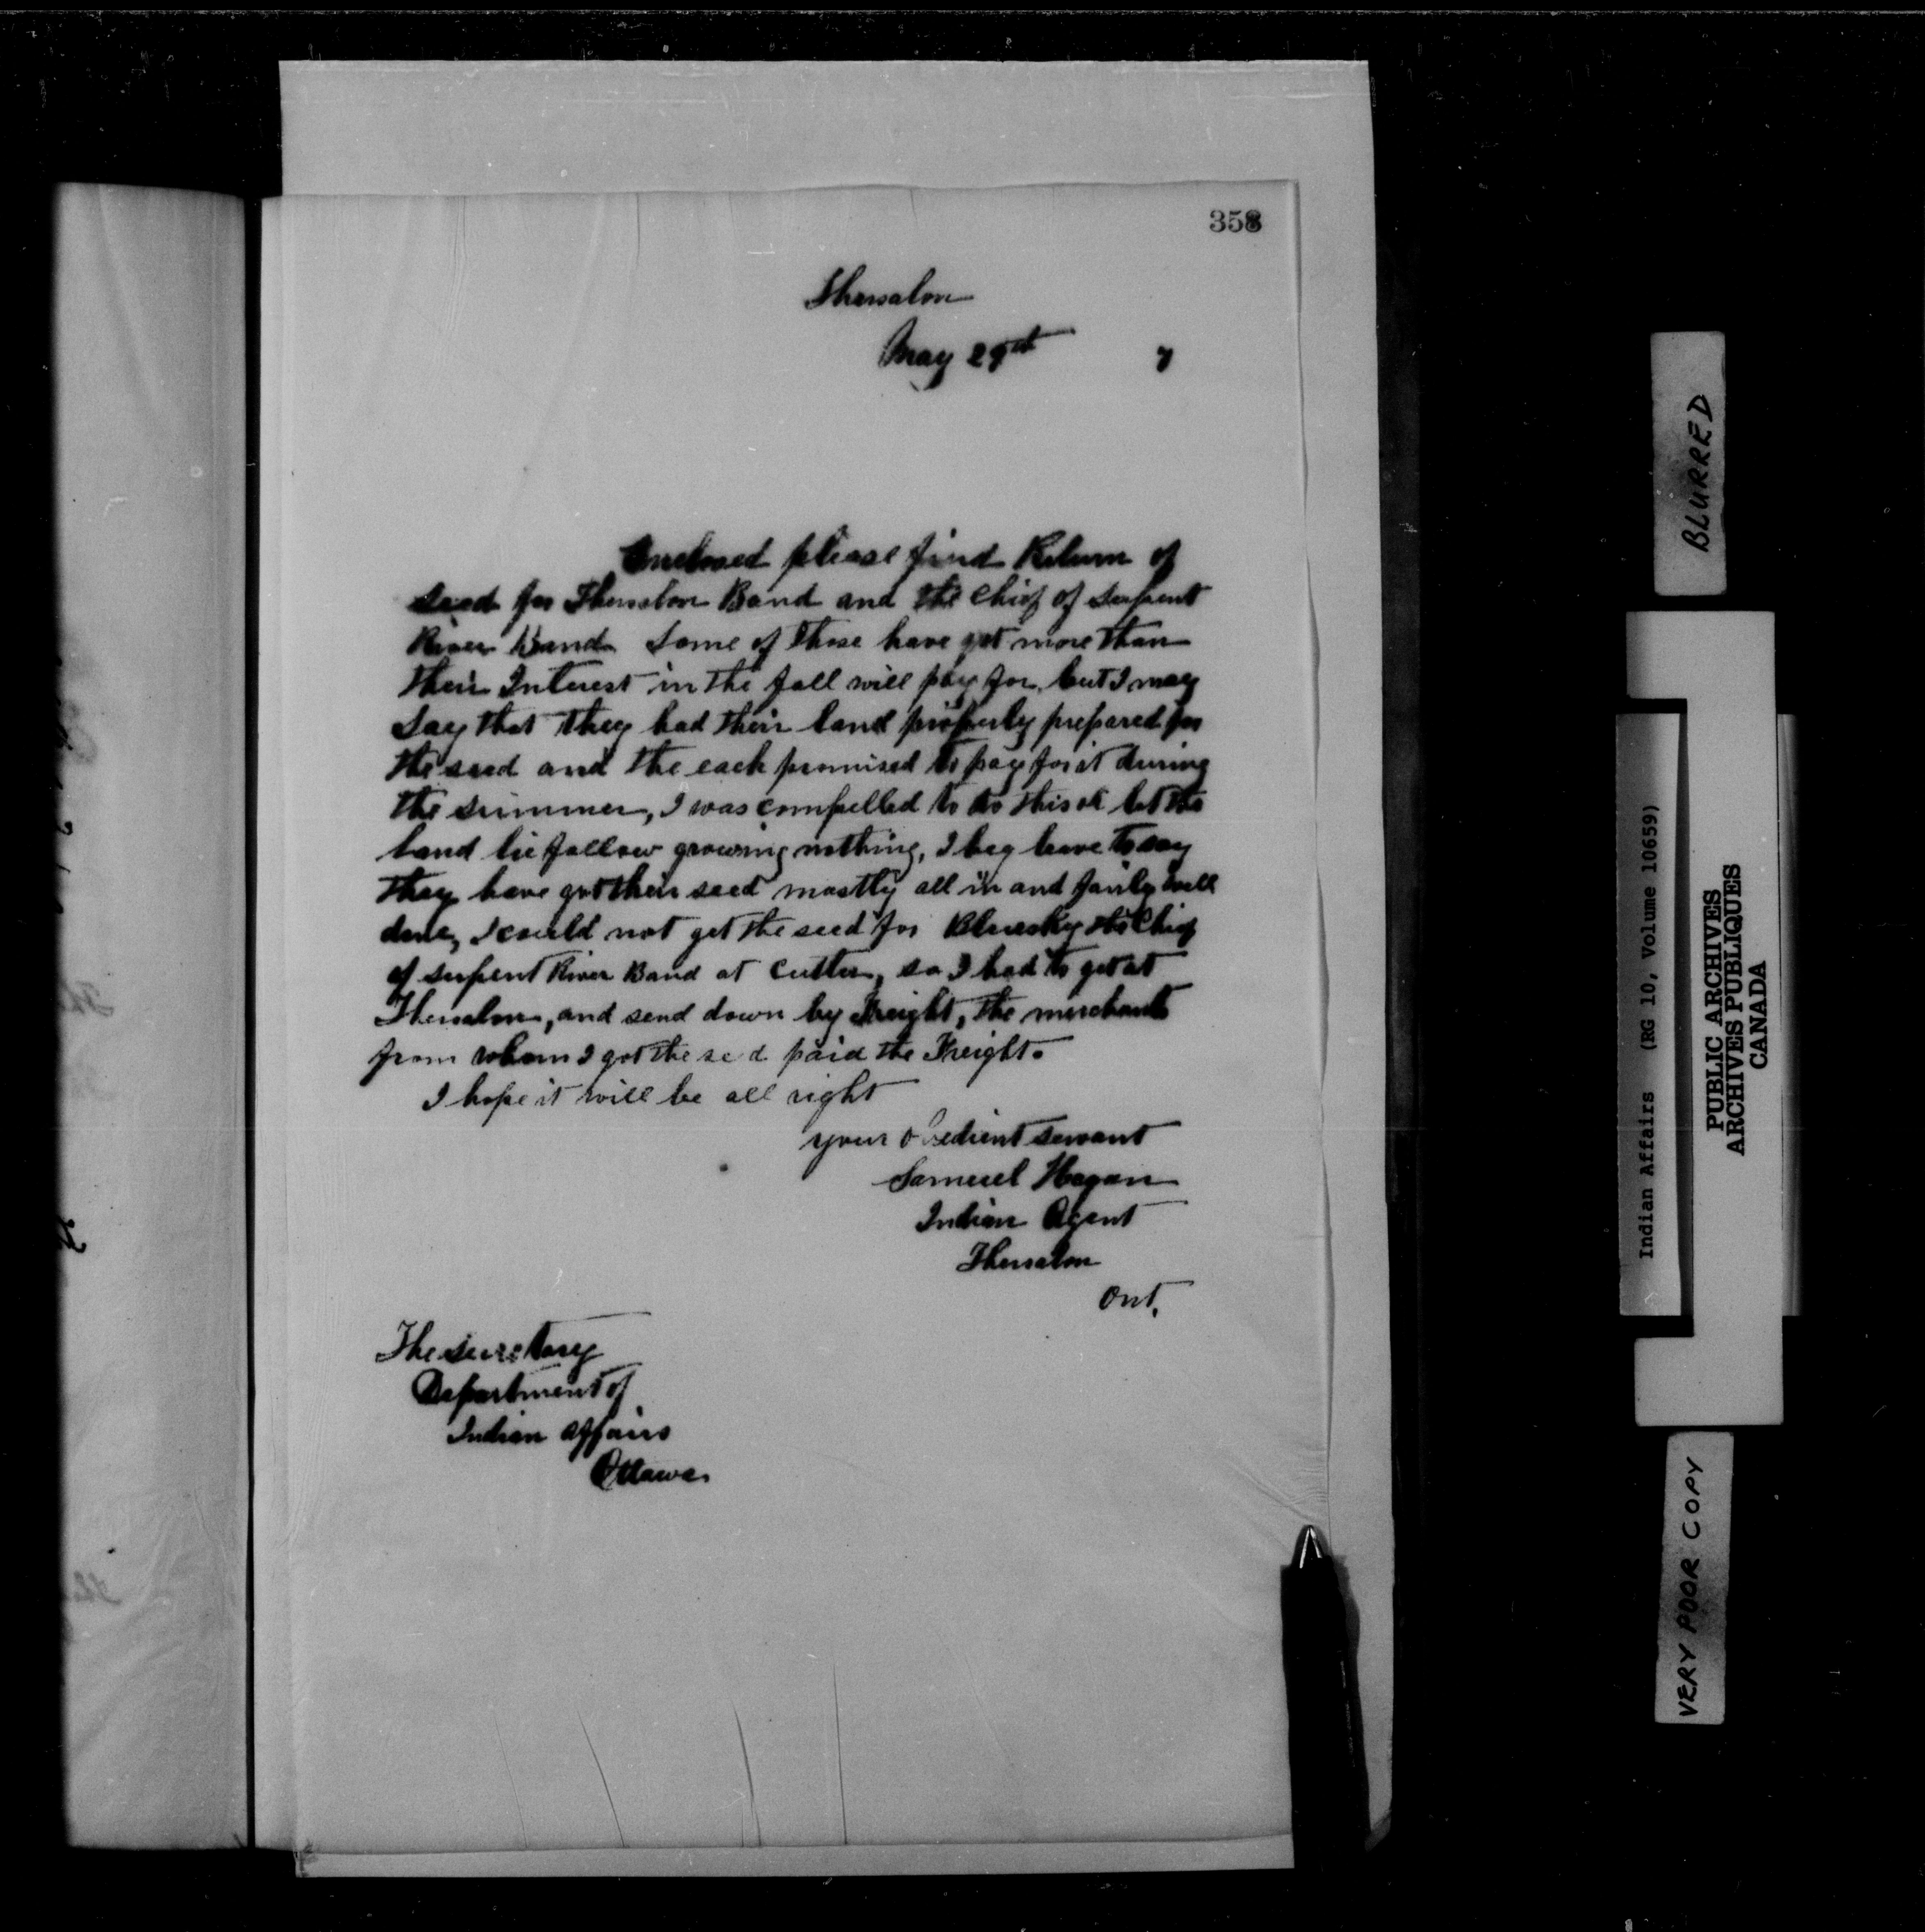 358
Thessalon
May 29th 7
Enclosed please find Return of
Seed for Thessalon Band and the Chief of Serpent
River Band Some of those have got more than
their Interest in the fall will pay for, but I may
Say that they had their land properly prepared for
the seed and the each promised to pay for it during
the summer, I was compelled to do this or let the
land lie fallow growing nothing, I beg leave to say
they have got their seed mostly all in and fairly well
done, I could not get the seed for Bluesky the Chief
of Serpent River Band at Cutler, so I had to get at
Thessalon, and send down by Freight, the merchants
from whom I got the seed paid the Freight.
I hope it will be all right
your obedient servant
Samuel Hagan
Indian Agent
Thessalon
Ont.
The Secretary
Department of
Indian Affairs
Ottawa.
BLURRED
Indian Affairs (RG 10, Volume 10659)
PUBLIC ARCHIVES
ARCHIVES PUBLIQUES
CANADA
VERY POOR COPY